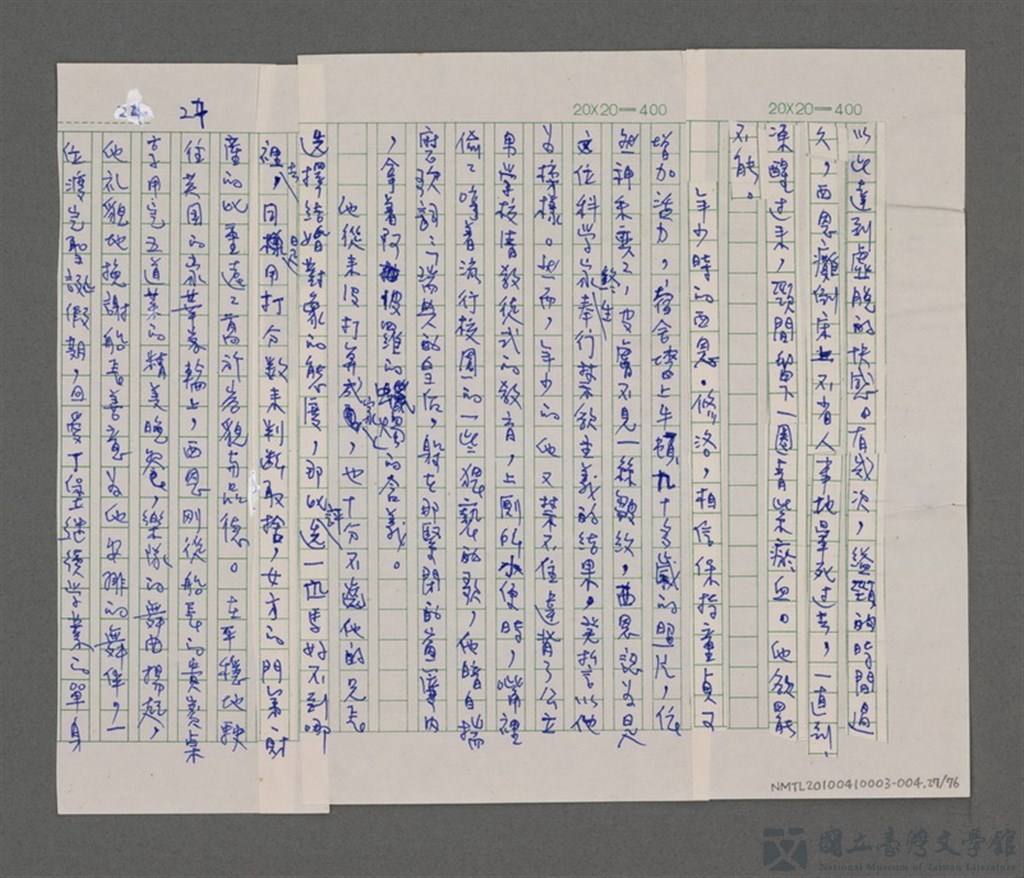 20X20=400
20X20=400
24
24
以此達到虛脫的快感。有幾次,縊頸的時間過
久,西恩癱倒床上不省人事地暈死過去,一直到
凍醒過來,頸間留下一圈青紫瘀血。他欲罷
不能。
年少時的西恩・修洛,相信保持童貞可
增加活力,宿舍墻上牛頓九十多歲的照片,依
然神采奕奕,皮膚不見一絲皺紋,西恩認為是
這位科學家終生奉行禁慾主義的結果,發誓以他
為榜樣。然而,年少的他又禁不住違背了公立
男學校清教徒式的教育,上廁所小便時,嘴裡
偷偷哼著流行校園的一些猥褻的歌,他暗自揣
摩歌詞:瑞典的皇后,躺在那緊閉的宮廈內
,拿著阿波羅的蠟燭的含義。
他從未沒打算成家,也十分不齒他的兄長
選擇結婚對象的態度,那比評選一匹馬好不到哪
裡去,同樣是用打分數來判斷取捨,女方的門第、財
產的比重遠遠高於容貌與品德。在平穩地駛
往英國的豪華客輪上,西恩剛從船長的貴賓桌
享用完五道菜的精美晚餐,樂隊的舞曲揚起,
他礼貌地婉謝船長善意為他安排的舞伴,一
位渡完聖誕假期,回愛丁堡繼續學業的單身
NMTL20100410003-004.27/76
國立臺灣文學館
National Museum of Taiwan Literature